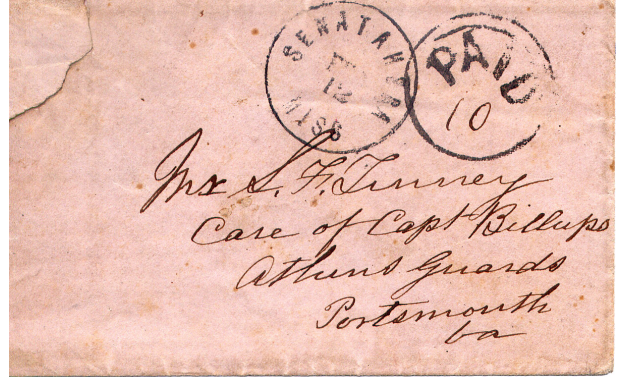 SENATAHOBIA MISS
12
PAID
10
Mr S. F. Tenney
Care of Capt Billups
Athens Guards
Portsmouth
Va